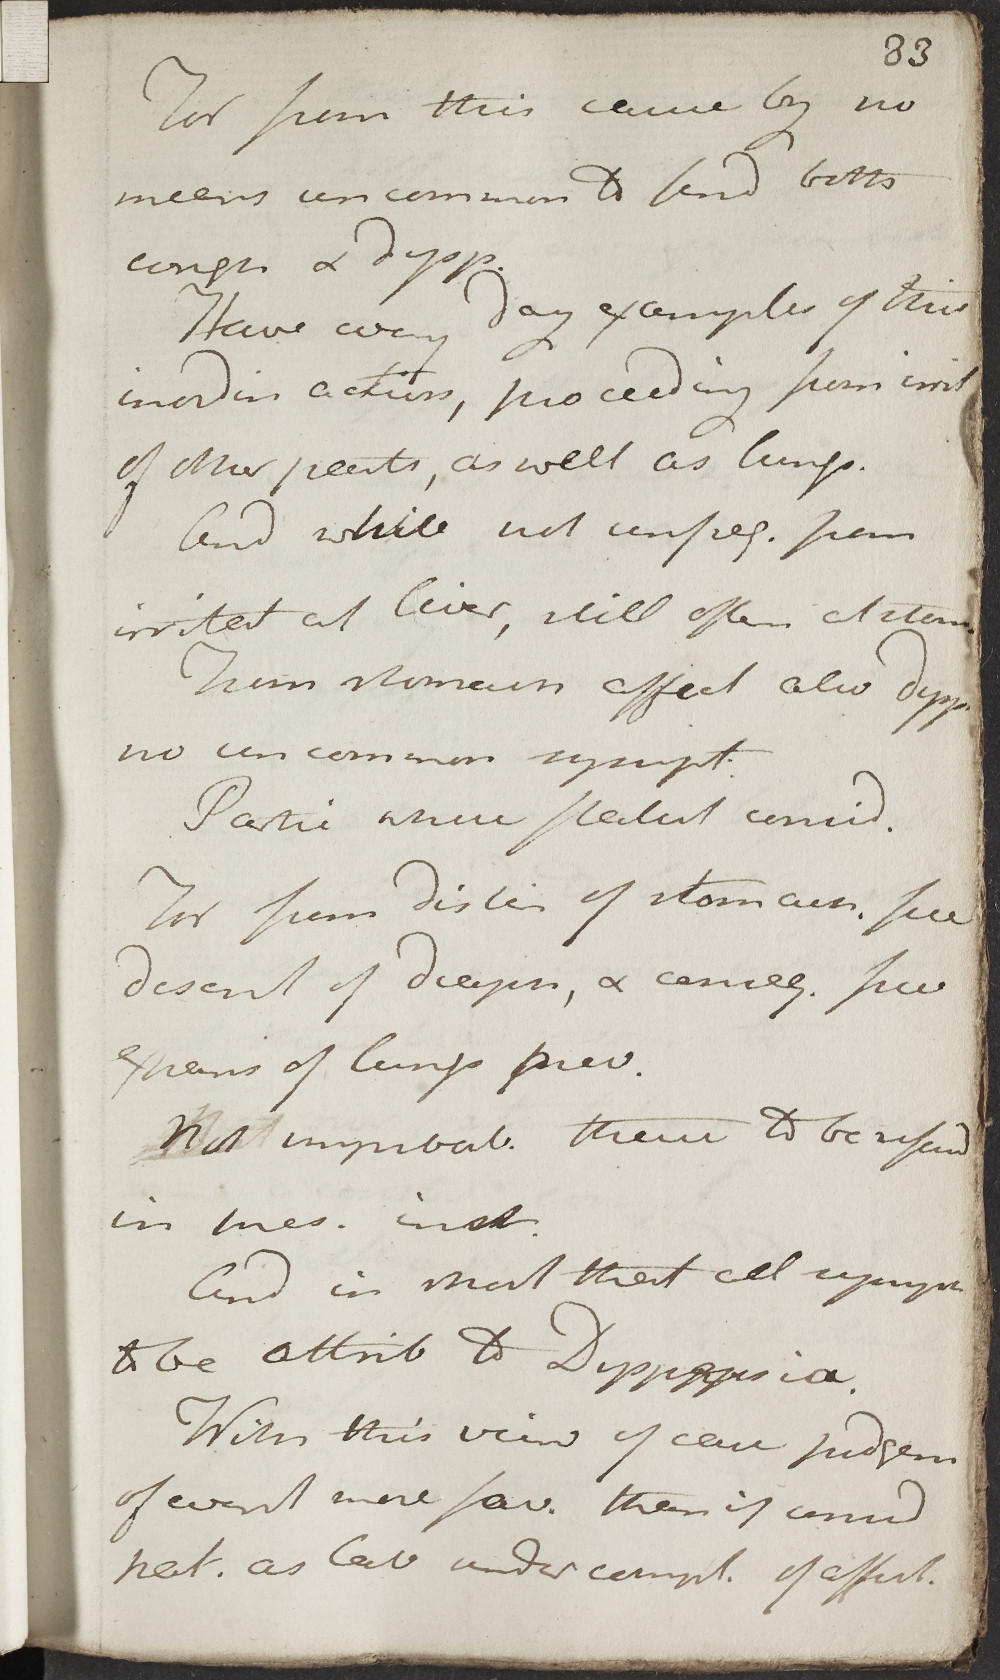 83
For from this cause by no
means uncommon to find both
cough & dysp.
Have every day examples of this
inordin action, proceeding from irrit
of other parts, as well as lungs.
And while not unfreq. from
irritat at liver, still often at stom.
From stomach affect also dysp.
no uncommon sympt.
Partic where flatul consid.
For from disten of stomach. free
descent of diaphr, & conseq. free
expans of lungs prev.
Not improbab. these to be refered
in pres. inst.
And in short that all sympt
to be attrib to Dyspepsia.
With this view of case judgem
of event more fav. than if consid
pat. as lab under compl. of affect.